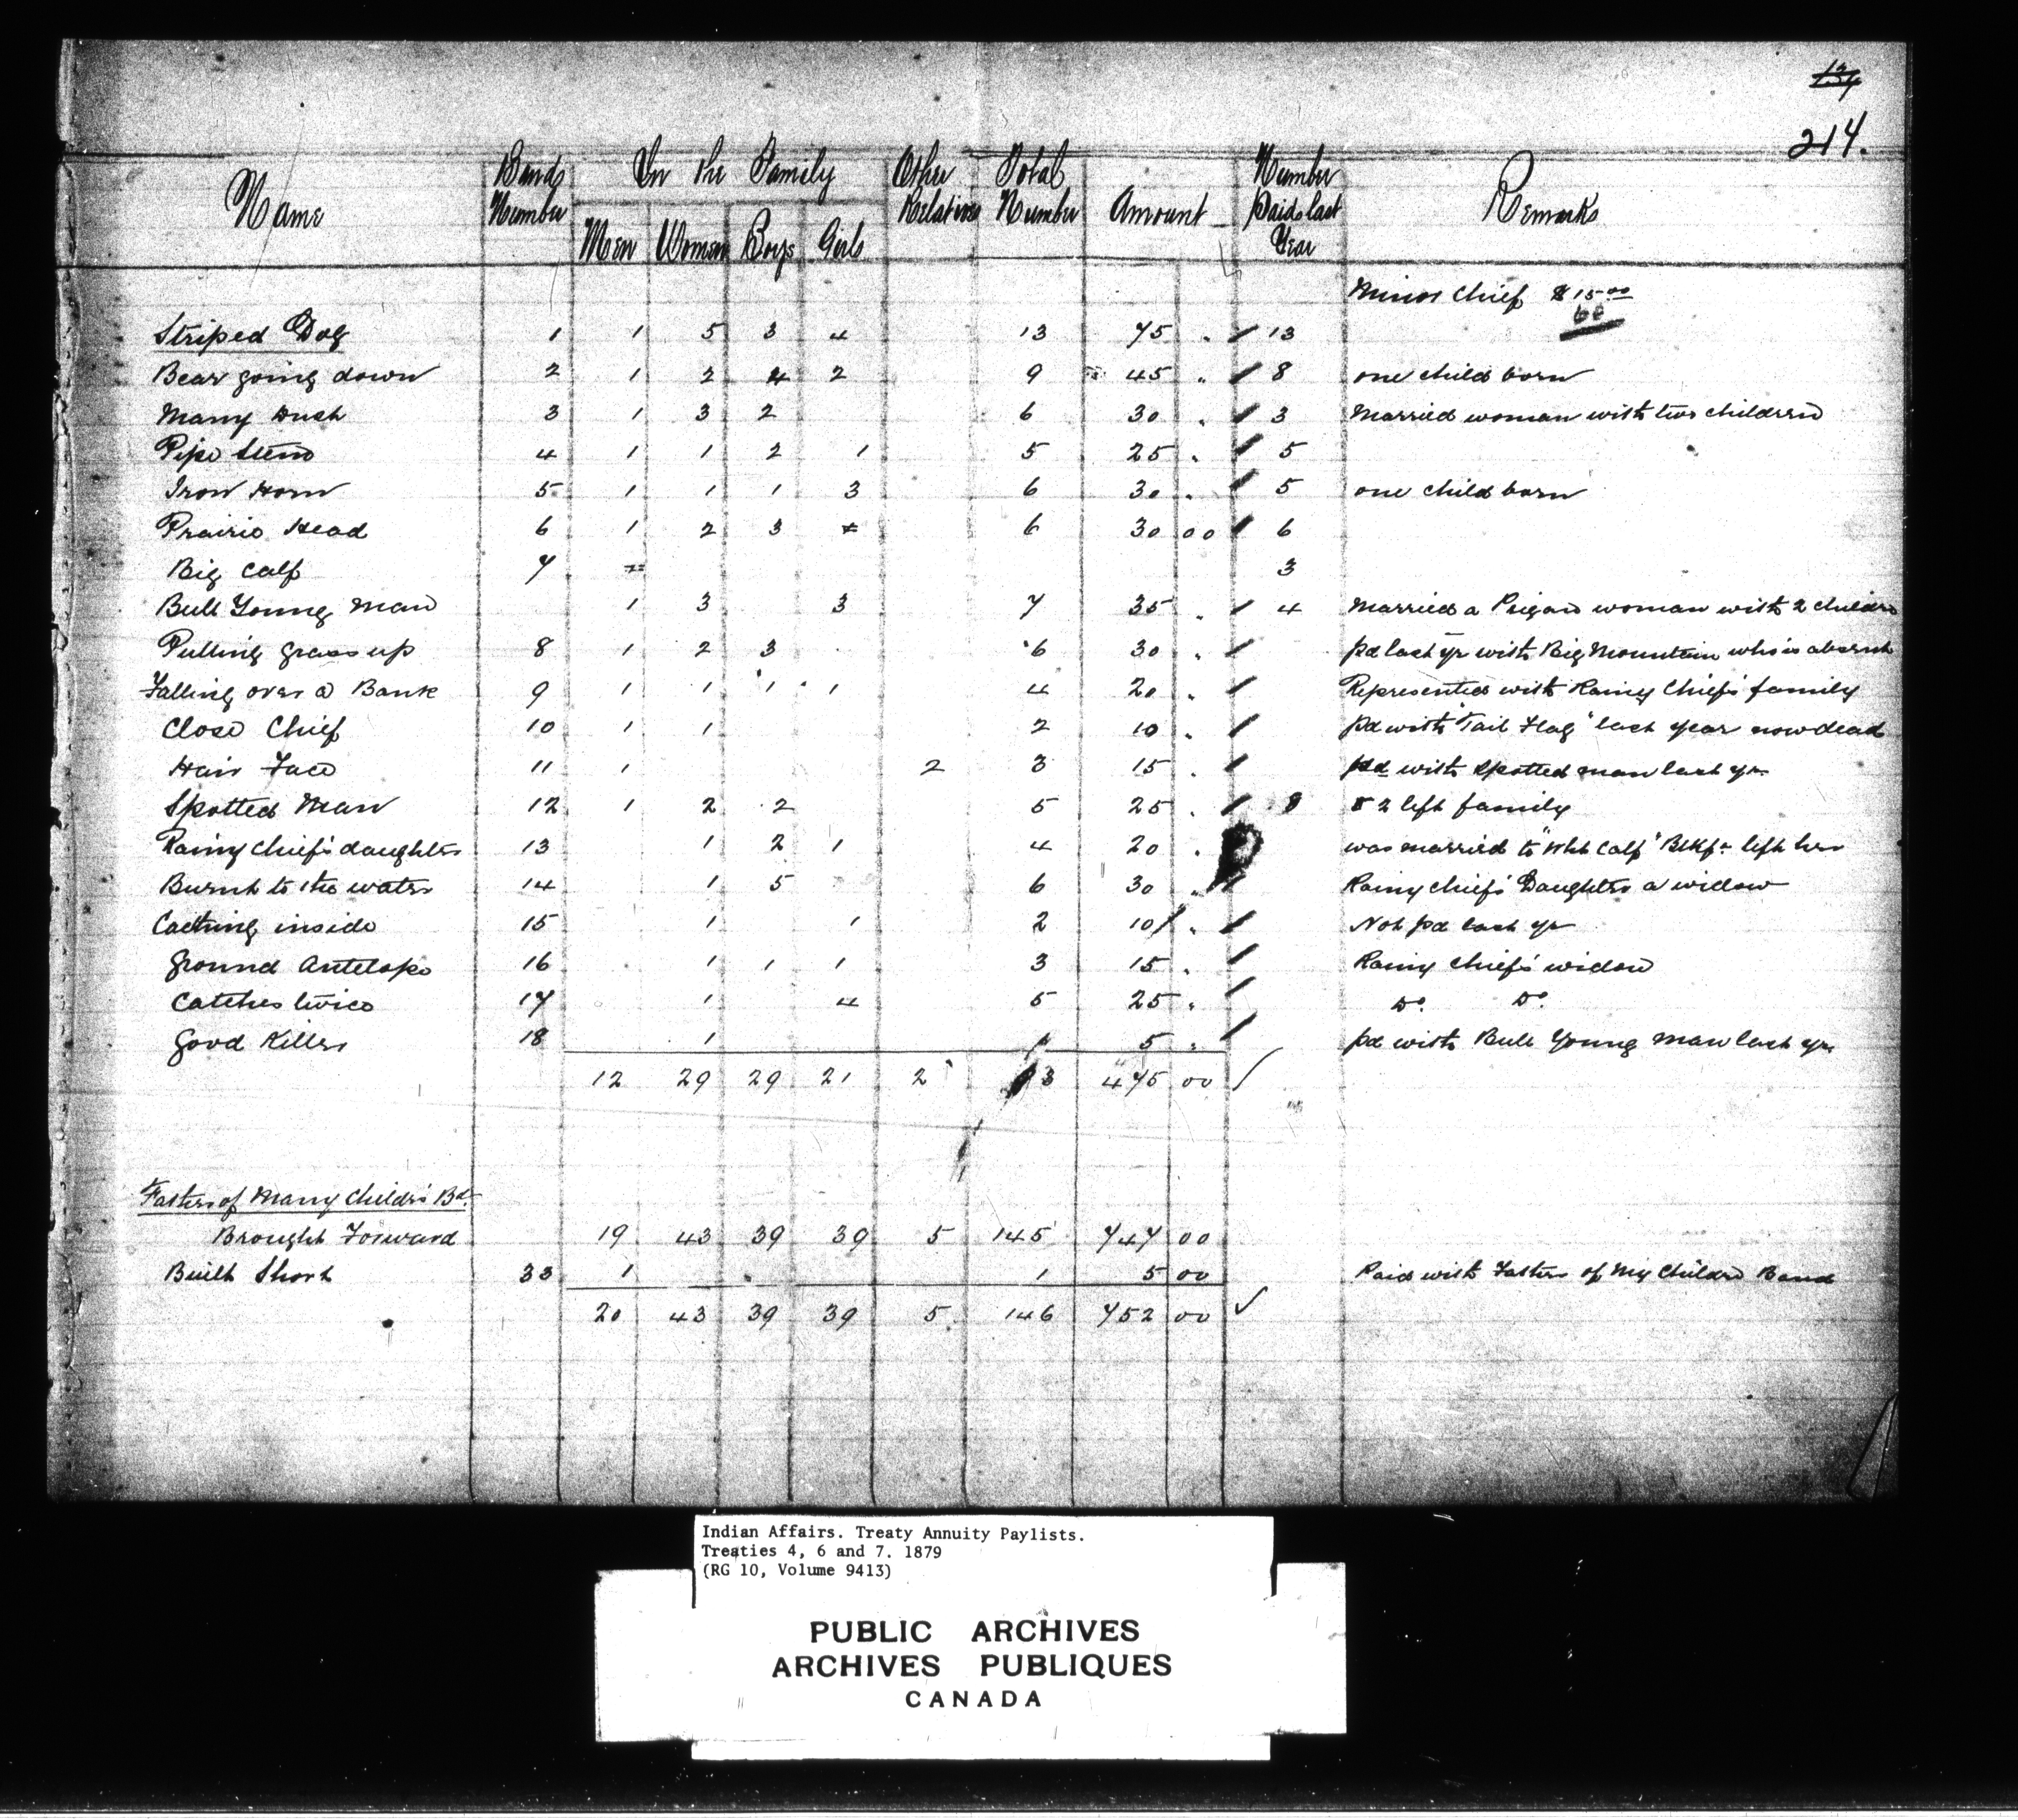 134
214.
Name Band Number In the Family Men Women Boys Girls Other Relatives Total Number Amount Number Paid last Year Remarks
Minor Chief $15.00
60
Striped Dog 1 1 5 3 4 13 75 " 13
Bear going down 2 1 2 4 2 9 45 " 8 one child born
Many Dust 3 1 3 2 6 30 " 3 Married woman with two children
Pipe Stem 4 1 1 2 1 5 25 " 5
Iron Horn 5 1 1 1 3 6 30 " 5 one child born
Prairie Head 6 1 2 3 6 30 00 6
Big Calf 7 3
Bull Young Man 1 3 3 7 35 " 4 Married a Peigan woman with 2 children
Pulling grass up 8 1 2 3 6 30 " pd last yr with Big Mountain who is absent
Falling over a Bank 9 1 1 1 1 4 20 " Represented with Rainy Chief's family
Close Chief 10 1 1 2 10 " pd with "Tail Flag" last year now dead
Hair Face 11 1 2 3 15 " pd with Spotted man last yr
Spotted Man 12 1 2 2 5 25 " 8 2 left family
Rainy Chief's daughter 13 1 2 1 4 20 " was married to "Wht Calf" Blkft left her
Burnt to the water 14 1 5 6 30 " Rainy Chief's Daughter a widow
Catching inside 15 1 1 2 10 " Not pd last yr
Ground Antelope 16 1 1 1 3 15 " Rainy Chief's widow
Catches twice 17 1 4 5 25 " Do. Do.
Good Killer 18 1 1 5 " pd with Bull Young Man last yr
12 29 29 21 2 93 475 00 ✓
Father of Many Childn's Bd.
Brought Forward 19 43 39 39 5 145 747 00
Built Short 33 1 1 5 00 Paid with Father of My Childn Band
20 43 39 39 5 146 752 00 ✓
Indian Affairs. Treaty Annuity Paylists.
Treaties 4, 6 and 7. 1879
(RG 10, Volume 9413)
PUBLIC ARCHIVES
ARCHIVES PUBLIQUES
CANADA